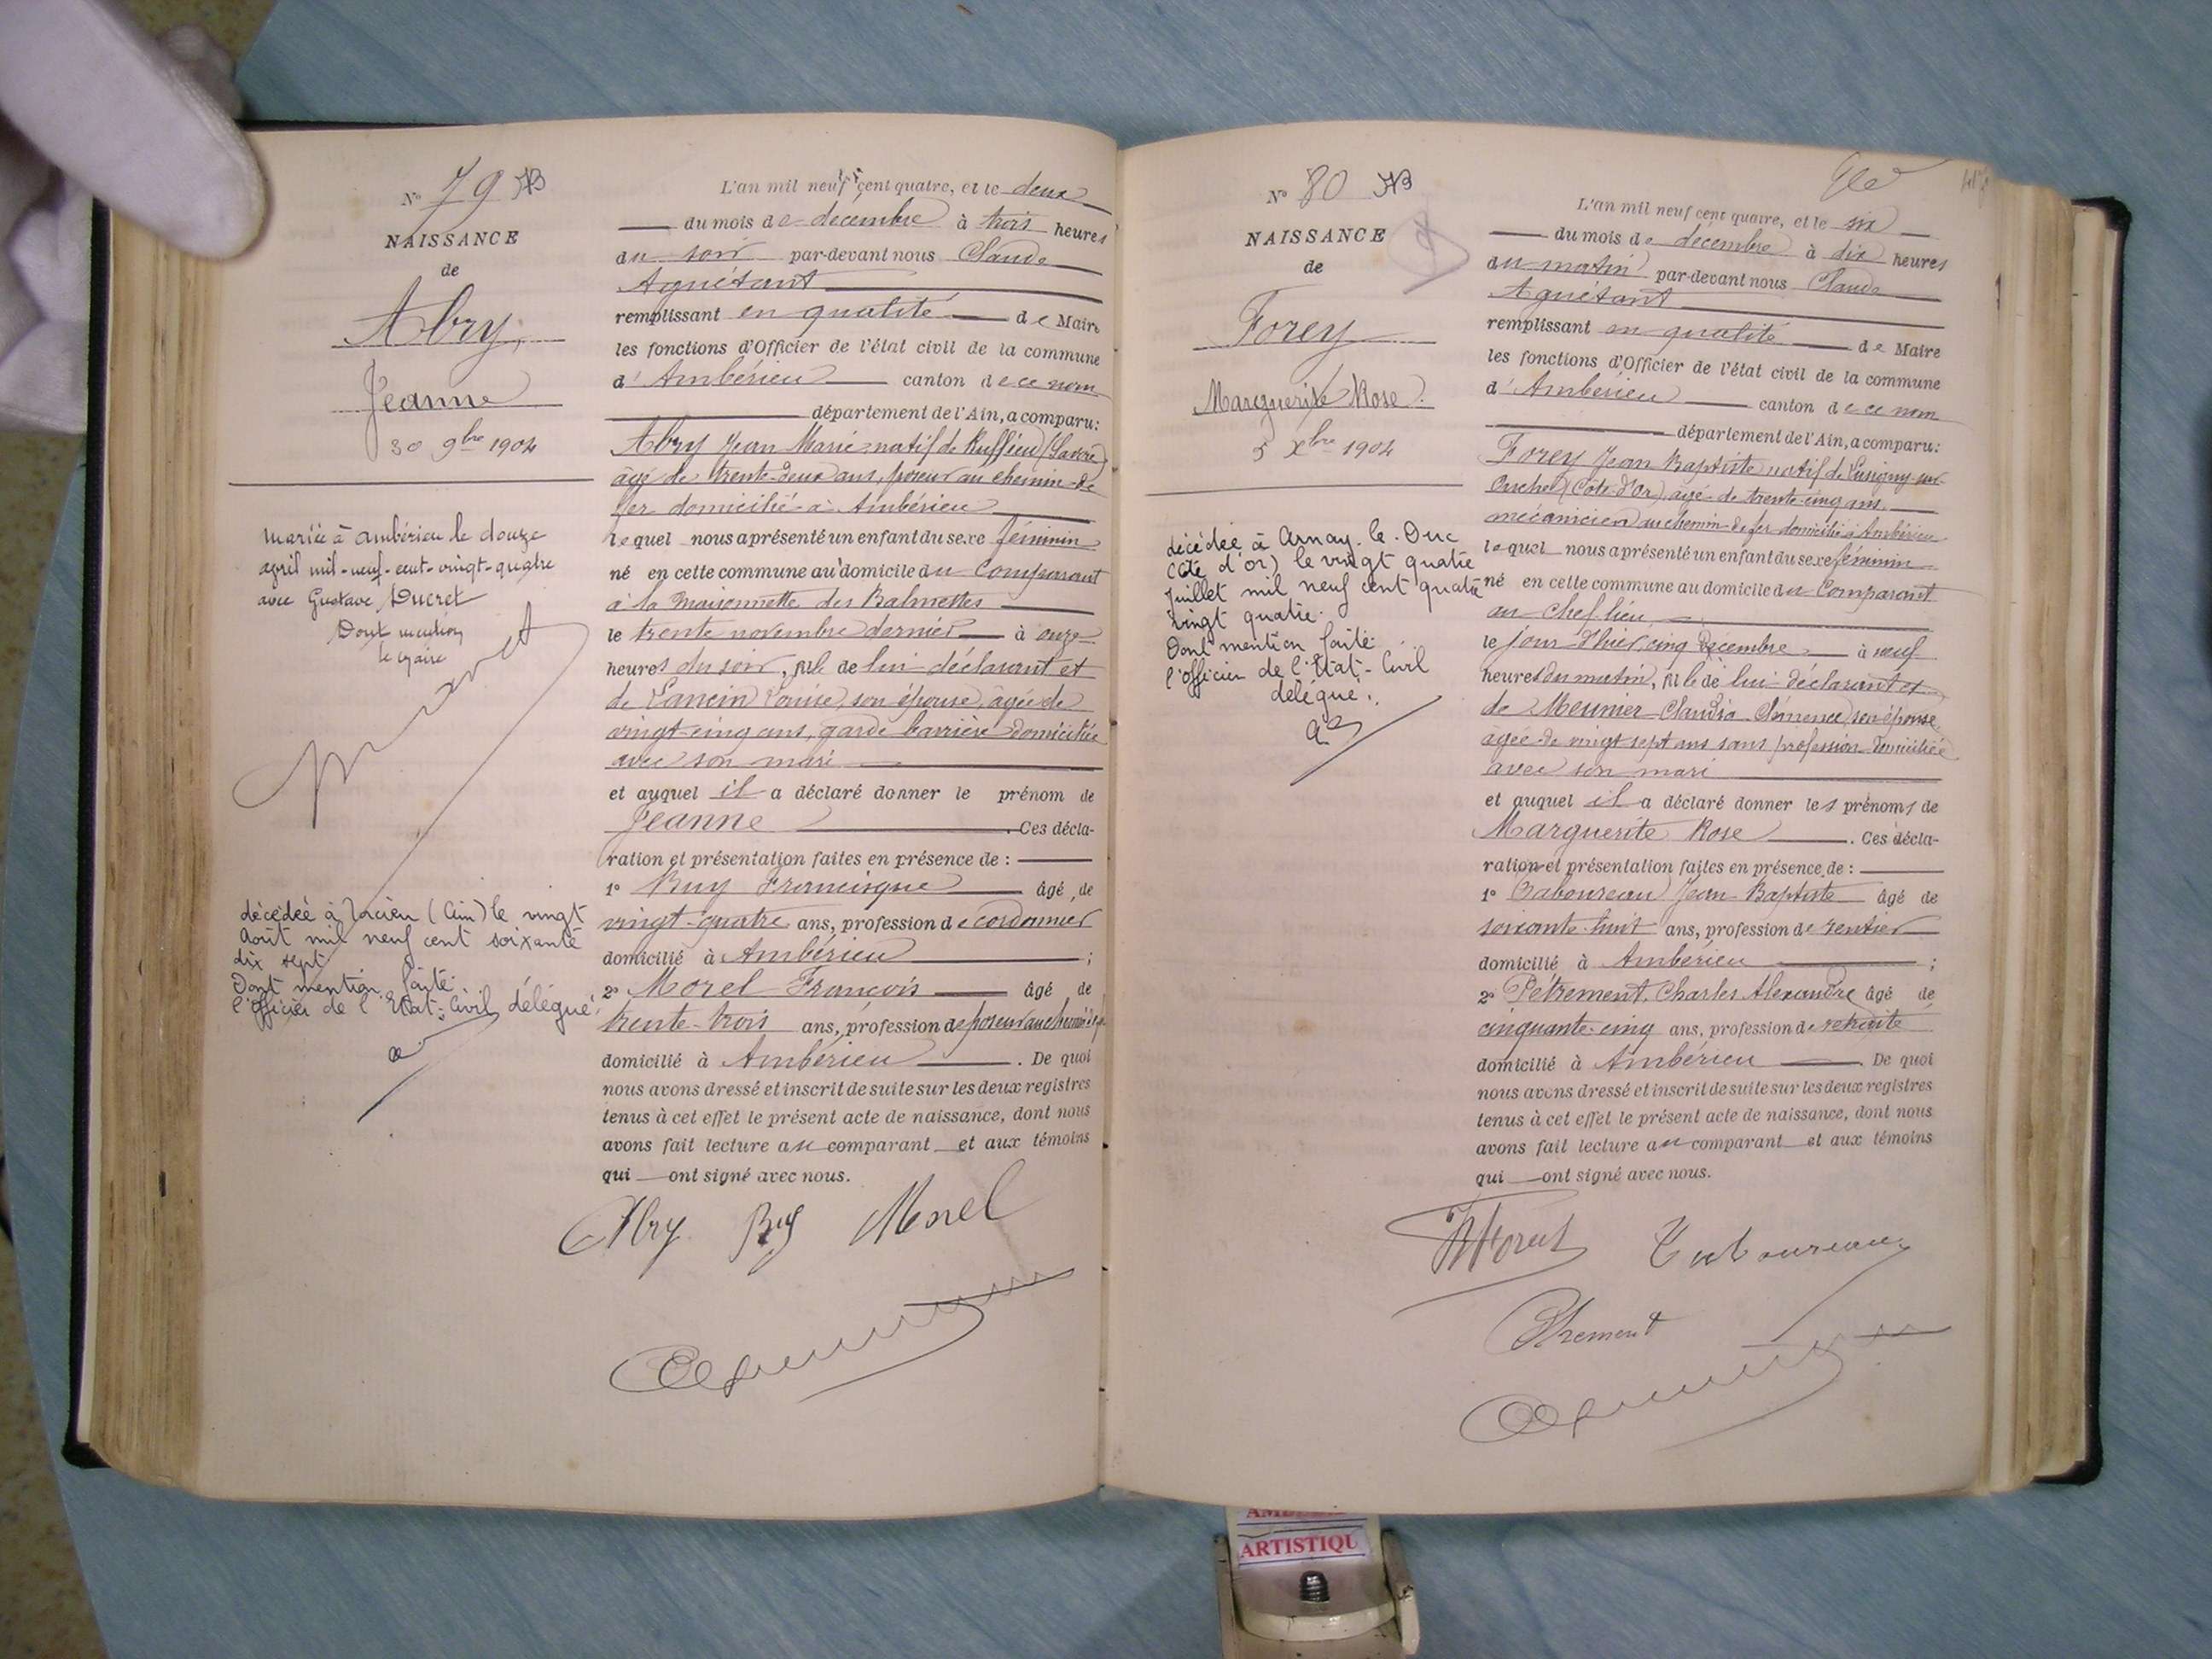 N° 79
NAISSANCE
de
Abry
Jeanne
30 9bre 1904
mariée à Ambérieu le douze
avril mil-neuf-cent-vingt-quatre
avec Gustave Ducret
Dont mention
le Maire
décédée à (Ain) le vingt
Août mil neuf cent soixante
dix sept
Dont mention faite.
l'officier de l'Etat-Civil délégué.
L'an mil neuf cent quatre, et le deux
du mois de décembre à trois heures
du soir par-devant nous Claude
Aguétant
remplissant en qualité de Maire
les fonctions d'Officier de l'état civil de la commune
d'Ambérieu canton de ce nom
département de l'Ain, a comparu:
Abry Jean Marie natif de Ruffieu (Savoie)
âgé de trente-deux ans, poseur au chemin de
fer domicilié à Ambérieu
lequel nous a présenté un enfant du sexe féminin
né en cette commune au domicile du Comparant
à la Maisonnette des Balmettes
le trente novembre dernier à onze
heures du soir, fille de lui déclarant et
de Lancin Louise, son épouse, âgée de
vingt-cinq ans, garde barrière domiciliée
avec son mari
et auquel il a déclaré donner le prénom de
Jeanne . Ces décla-
ration et présentation faites en présence de :
1° Buy Francisque âgé de
vingt-quatre ans, profession de cordonnier
domicilié à Ambérieu ;
2° Morel François âgé de
trente-trois ans, profession de poseur au chemin de fer
domicilié à Ambérieu . De quoi
nous avons dressé et inscrit de suite sur les deux registres
tenus à cet effet le présent acte de naissance, dont nous
avons fait lecture au comparant et aux témoins
qui ont signé avec nous.
Abry Buy Morel
N° 80
NAISSANCE
de
Forey
Marguerite Rose
5 Xbre 1904
décédée à Arnay-le-Duc
(Côte d'or) le vingt quatre
Juillet mil neuf cent quatre
vingt quatre.
Dont mention faite.
l'officier de l'Etat-Civil
délégué.
L'an mil neuf cent quatre, et le six
du mois de décembre à dix heures
du matin par-devant nous Claude
Aguétant
remplissant en qualité de Maire
les fonctions d'Officier de l'état civil de la commune
d'Ambérieu canton de ce nom
département de l'Ain, a comparu:
Forey Jean Baptiste natif de Lusigny-sur-
Ouche (Côte-d'Or), âgé de trente-cinq ans
mécanicien au chemin de fer domicilié à Ambérieu
lequel nous a présenté un enfant du sexe féminin
né en cette commune au domicile du Comparant
au Chef-lieu
le jour d'hier cinq Décembre à neuf
heures du matin, fille de lui déclarant et
de Meunier Claudia Clémence, son épouse
âgée de vingt sept ans sans profession domiciliée
avec son mari
et auquel il a déclaré donner les prénoms de
Marguerite Rose . Ces décla-
ration et présentation faites en présence de :
1° Taboureau Jean Baptiste âgé de
soixante-huit ans, profession de rentier
domicilié à Ambérieu ;
2° Pétrement Charles Alexandre âgé de
cinquante-cinq ans, profession de retraité
domicilié à Ambérieu . De quoi
nous avons dressé et inscrit de suite sur les deux registres
tenus à cet effet le présent acte de naissance, dont nous
avons fait lecture au comparant et aux témoins
qui ont signé avec nous.
Taboureau
Pétrement
ARTISTIQU